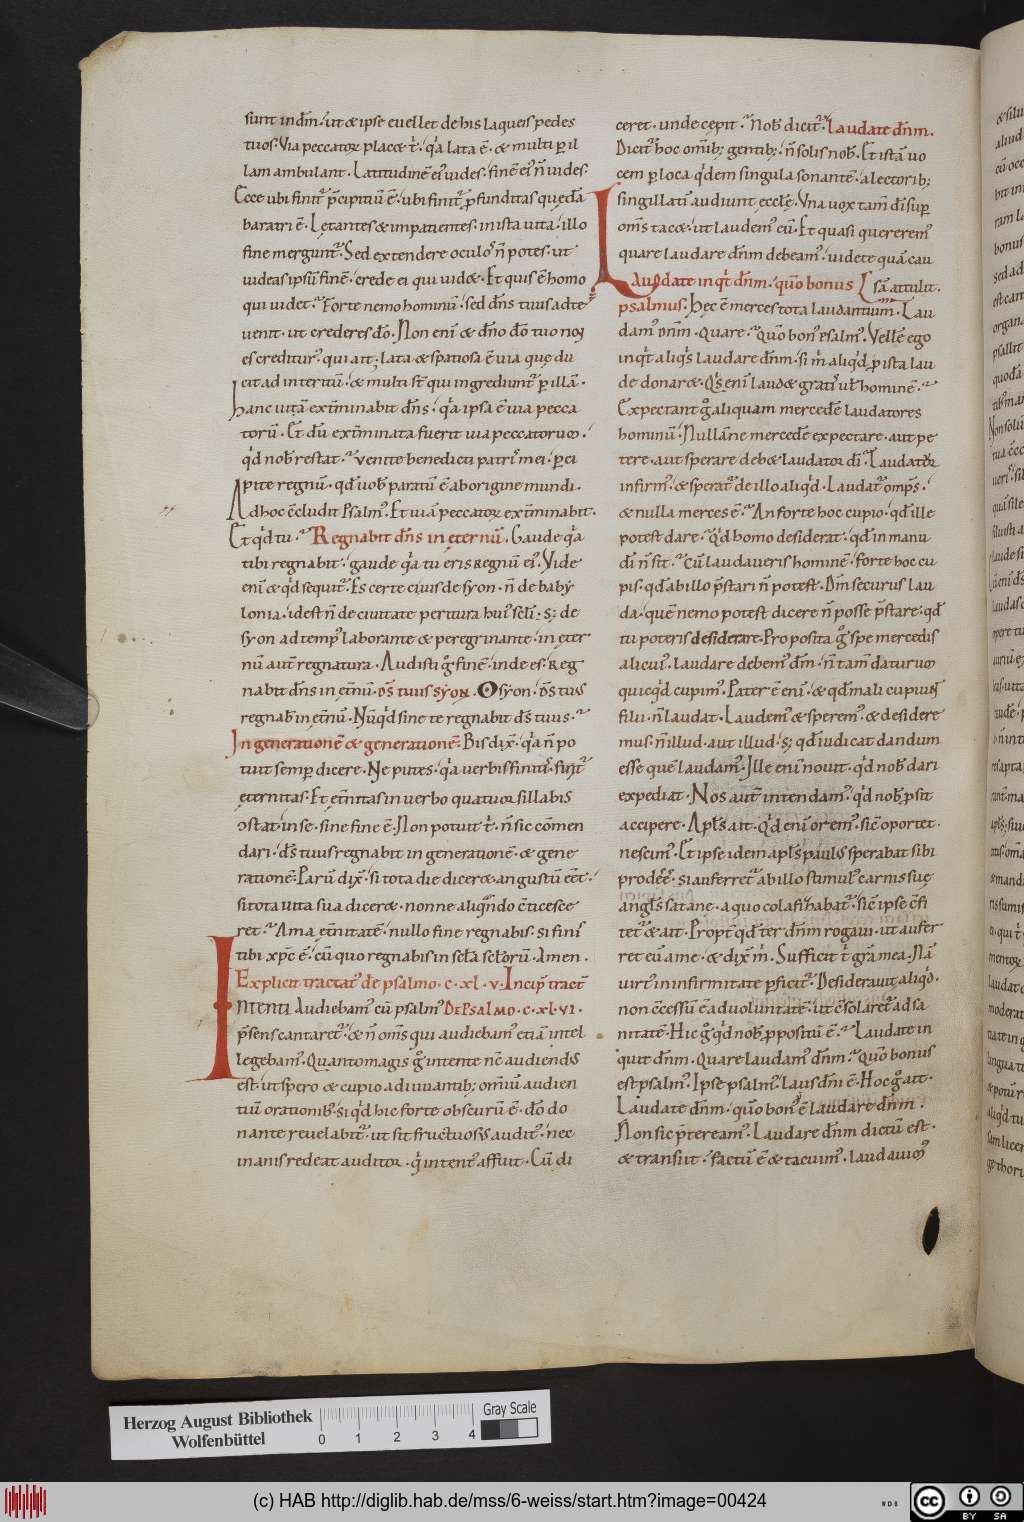 sunt in dn̄m· ut & ipse euellet de his laqueis pedes
tuos· Via peccator placet t̄· q̓a lata ē· & multi p̱ il
lam ambulant· Latitudinē ei᾽ uides· finē ei᾽ n̄ uides·
Ecce ubi finit᾽ p̄cipitiū ē· ubi finit᾽ p̱funditas quędā
baratri ē· Lętantes & impatientes· in ista uita· illo
fine mergunt᾽· Sed extendere oculo᾽ n̄ potes· ut
uideas ipsū finē· crede ei qui uidet· Et quis ē homo
qui uidet· Forte nemo hominū· sed dn̄s tuus ad te
uenit· ut crederes dō· Non enī & dn̄o dō tuo nos
es creditur᾽· qui ait· lata & spatiosa ē uia quę du
cit ad interitū· & multi st̄ qui ingrediunt᾽ p̱ illā·
hanc uitā exterminabit dn̄s· q̓a ipsa ē uia pecca
torū· Et dū exterminata fuerit uia peccatorum·
q̓d nob̄ restat· uenite benedicti patri᾽ mei· p̱ci
pite regnū· qd̄ uob̄ paratū ē ab origine mundi·
Ad hoc c̄cludit Psalm᾽· Et uiā peccator exterminabit·
Et q̓d tu· Regnabit dn̄s in ęternū· Gaude q̓a
tibi regnabit· gaude q̓a tu eris regnū ei᾽· Vide
enī & q̓d sequit᾽· Es certe ciuis de syon· n̄ de baby
lonia· idest n̄ de ciuitate peritura hui᾽ sc̄li· s; de
syon ad temp᾽ laborante & peregrinante· in ęter
nū aut̄ regnatura· Audisti g̊ finē· inde es· Reg
nabit dn̄s in ęt̄nū· ds̄ tuus syon· O syon· ds̄ tuus
regnab̄ in ęt̄nū· Nūq̓d sine te regnabit ds̄ tuus·
In generationē & generationē· Bis dix̄· q̓a n̄ po
tuit semp̱ dicere· Ne putes· q̓a uerbis finit᾽· finit᾽
ęternitas· Et ęt̄nitas in uerbo quatuor sillabis
ɔstat· in se· sine fine ē· Non potuit t̄· n̄ sic cōmen
dari· ds̄ tuus regnabit in generationē· & gene
rationē· Parū dix̄· si tota die diceret· angustū eēt·
si tota uita sua diceret· nonne aliqn̄do c̄ticesce
ret· Ama ęt̄nitatē· nullo fine regnabis· si fini᾽
tibi xp̄c ē· cū quo regnabis in sc̄la sc̄lorū· Amen·
Explicit tractat᾽ de psalmo· c· xl· v· Incip̄ tract̄
INtenti Audiebam᾽ cū psalm᾽ De Psalmo· c· xl· vi·
p̄sens cantaret᾽· & n̄ om̄s qui audiebam᾽ etiā intel
legebam᾽· Quanto magis g̊ intente nc̄ audiendū
est· ut spero & cupio adiuuantib; omniū audien
tiū orationib᾽· si q̓d hic forte obscurū ē· dō do
nante reuelabit᾽· ut sit fructuosus audit᾽· nec
inanis redeat auditor· q̓ intent᾽ affuit· Cū di
ceret· unde cępit· Nob̄ dicit᾽· Laudate dn̄m·
Dicit᾽ hoc omīb; gentib;· n̄ solis nob̄· Et istā uo
cem p̱ loca q̓dem singula sonantē· a lectorib;
singillatī audiunt ęcclę· Vna uox tam dī sup̱
om̄s tacet· ut laudem᾽ eū· Et quasi quererem᾽
quare laudare dn̄m debeam᾽· uidete quā cau
Laudate in q̓t dn̄m· qm̄o bonus sā attulit·
psalmus· Hęc ē merces tota laudantium· Lau
dam᾽ dn̄m· Quare· Qm̄o bon᾽ psalm᾽· Vellē ego
inq̓t aliq᾽s laudare dn̄m· si m̄ aliq̓d p̱ ista lau
de donaret· Q᾽s enī laudet grati᾽ ul̄ hominē·
Expectant g̊ aliquam mercedē laudatores
hominū· Nullāne mercedē expectare· aut pe
tere· aut sperare debet laudator dī· Laudator
infirm᾽· & sperat᾽ de illo aliq̓d· Laudat᾽ omp̄s·
& nulla merces ē· An forte hoc cupio· qd̄ ille
potest dare· Q̓d homo desiderat· qd̄ in manu
dī n̄ sit· Cū laudaueris hominē· forte hoc cu
pis· qd̄ ab illo p̄stari n̄ potest· Dm̄ securus lau
da· quē nemo potest dicere n̄ posse p̄stare· qd̄
tu poteris desiderare· Proposita g̊ spe mercedis
alicui᾽· laudare debem᾽ dm̄· n̄ tam daturum
quicq̓d cupim᾽· Pater ē enī· & qd̄ mali cupiunt
filii· n̄ laudat· Laudem᾽ & sperem᾽· & desidere
mus· n̄ illud· aut illud· s; qd̄ iudicat dandum
esse quē laudam᾽· Ille enī nouit· q̓d nob̄ dari
expediat· Nos aut̄ intendam᾽· q̓d nob̄ p̱sit
accipere· Apl̄s ait· Q̓d enī orem᾽· sic̄ oportet·
nescim᾽· Et ipse idem apl̄s paulus sperabat sibi
prodeē· si auferret᾽ ab illo stimul᾽ carnis suę
angl̄s satanę· a quo colafizabat᾽· sic̄ ipse c̄fi
tet᾽· & ait· Propt̄ qd̄ ter dn̄m rogaui· ut aufer
ret eū a me· & dix̄ m̄· Sufficit t̄ grā mea· Nā
uirt᾽ in infirmitate p̱ficit᾽· Desiderauit aliq̓d·
non c̄cessū ē ad uoluntatē· ut c̄solaret᾽ ad sa
nitatē· Hic g̊ q̓d nob̄ p̱positū ē· Laudate in
quit dn̄m· Quare laudam᾽ dn̄m· Qm̄o bonus
est psalm᾽· Ipse psalm᾽· laus dn̄i ē· Hoc g̊ ait·
Laudate dn̄m· qm̄o bon᾽ ē laudare dn̄m·
Non sic p̄teream᾽· Laudare dn̄m dictū est·
& transiit· factū ē & tacuim᾽· laudauim᾽
Herzog August Bibliothek
Wolfenbüttel
0 1 2 3 4
Gray Scale
(c) HAB http://diglib.hab.de/mss/6-weiss/start.htm?image=00424
WDB
cc BY SA